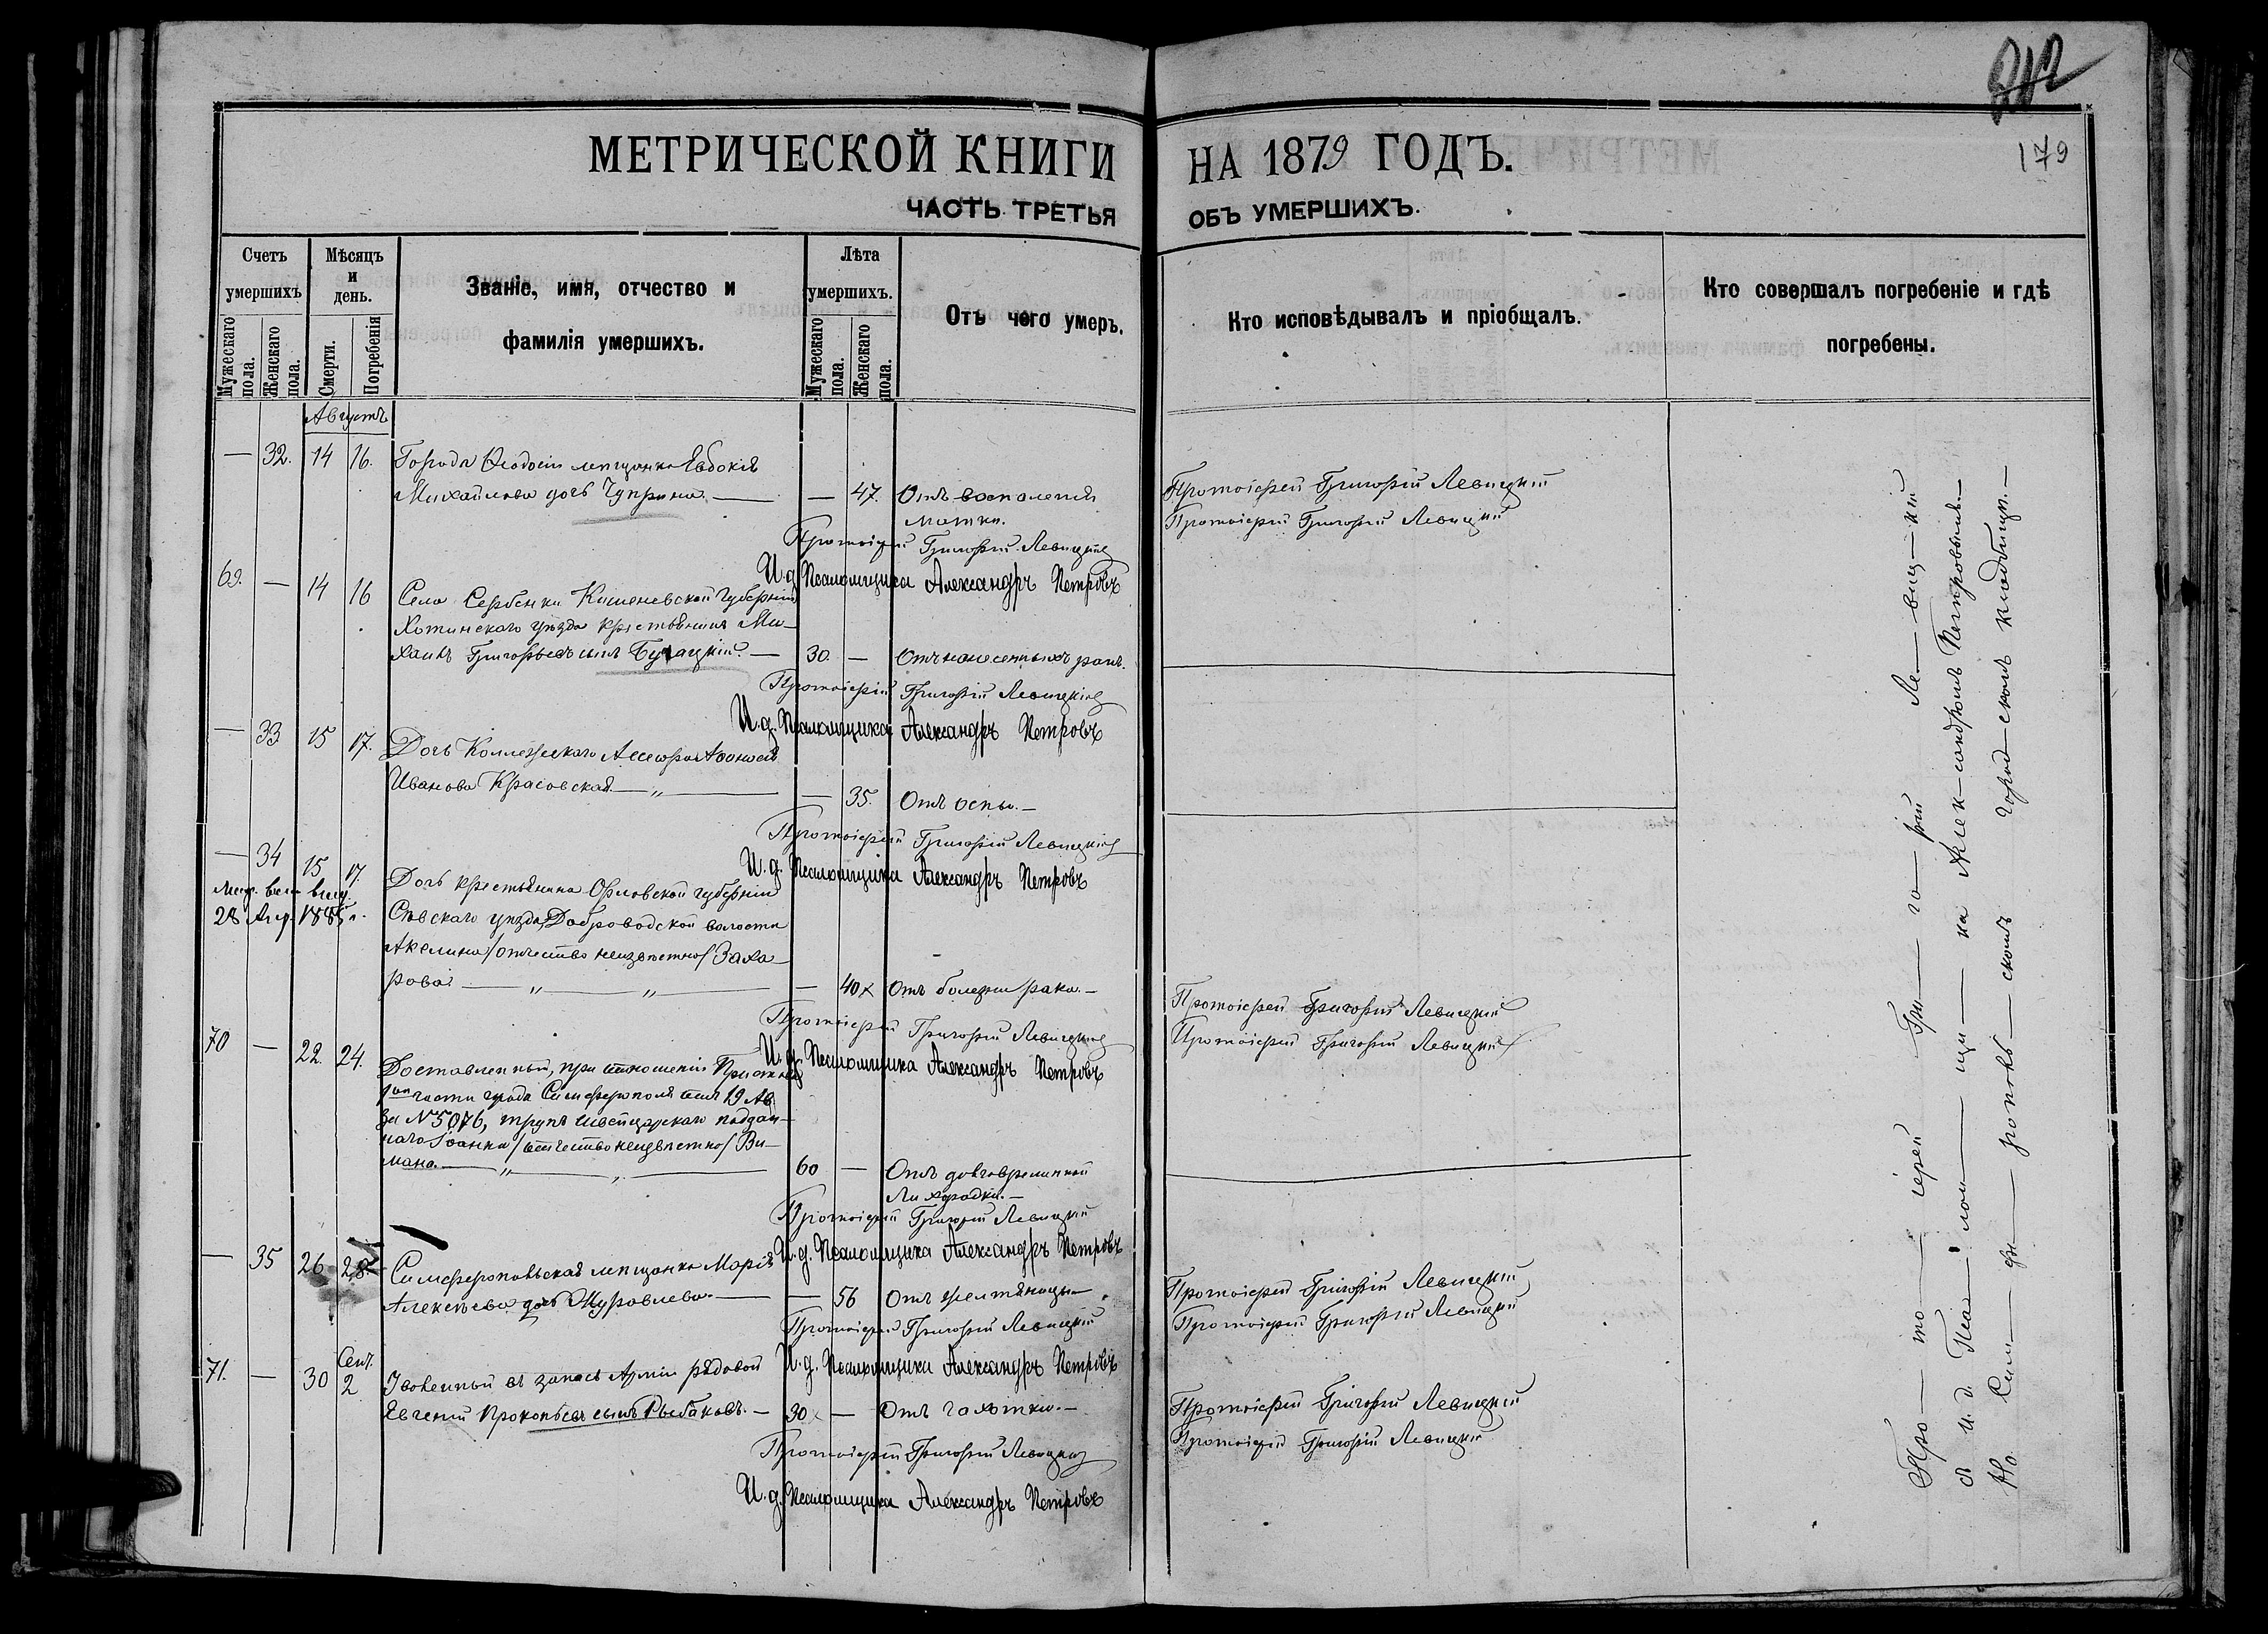 212
179
МЕТРИЧЕСКОЙ КНИГИ НА 1879 ГОДЪ.
ЧАСТЬ ТРЕТЬЯ ОБЪ УМЕРШИХЪ.
Счетъ умершихъ
Мужескаго пола.
Женскаго пола.
Мѣсяцъ и день.
Смерти.
Погребенія
Званіе, имя, отчество и
фамилія умершихъ.
Лѣта умершихъ.
Мужескаго пола.
Женскаго пола.
Отъ чего умеръ.
Кто исповѣдывалъ и пріобщалъ.
Кто совершалъ погребеніе и гдѣ
погребены.
Августъ
— 32. 14 16. Города Ѳеодосіи мещанка Евдокія
Михайлова дочь Чуприна. — — 47. Отъ воспаленія
матки.
Протоіерей Григорій Левицкій
Протоіерей Григорій Левицкій
Протоіерей Григорій Левицкій
И. д. Псаломщика Александръ Петровъ
69. — 14 16 Села Сербенки Кишеневской Губерніи
Хотинскаго уѣзда крестьянинъ Ми-
хаилъ Григорьевъ сынъ — 30 — Отъ нанесенныхъ ранъ.
Протоіерей Григорій Левицкій
И. д. Псаломщика Александръ Петровъ
— 33 15 17. Дочь Коллежскаго Ассесора
Иванова Красовская. — „ — — 35. Отъ оспы. —
Протоіерей Григорій Левицкій
И. д. Псаломщика Александръ Петровъ
— 34 15 17. Дочь крестьянина Орловской губерніи
28 Апр. 1885 г.
Сѣвскаго уѣзда, Доброводской волости
Акелина /отчество неизвѣстно/ Заха-
рова — „ — „ — — 40 Отъ болезни рака. —
Протоіерей Григорій Левицкій
Протоіерей Григорій Левицкій
Протоіерей Григорій Левицкій
И. д. Псаломщика Александръ Петровъ
70 — 22. 24. Доставленный, при отношеніи Пристава
1ой части града Симферополя отъ 19 Ав.
за № 5076, трупъ Швейцарскаго поддан-
наго Іоанна /отчество неизвѣстно/ Ви-
мана. — „ — 60 — Отъ долговременной
Лихорадки. —
Протоіерей Григорій Левицкій
И. д. Псаломщика Александръ Петровъ
— 35 26 28 Симферопольская мещанка Марія
Алексѣева дочь Журовлева. — — 56 Отъ желтяницы —
Протоіерей Григорій Левицкій
Протоіерей Григорій Левицкій
Протоіерей Григорій Левицкій
И. д. Псаломщика Александръ Петровъ
71. — 30 Сент. 2 Уволенный въ запасъ Арміи рядовой
Евгеній Прокопьевъ сынъ Рыбаковъ. — 30 — Отъ чахотки. —
Протоіерей Григорій Левицкій
Протоіерей Григорій Левицкій
Протоіерей Григорій Левицкій
И. д. Псаломщика Александръ Петровъ
Про — то — іерей Гри — го — рій Ле — виц — кій
съ и. д. Пса — лом — щи — ка Алек — сандромъ Петровымъ. —
На Сим — фе — рополь — скомъ город — скомъ кладбищѣ. —